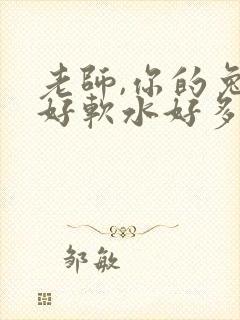 老師,你的兔
好軟水好多
鄒敏